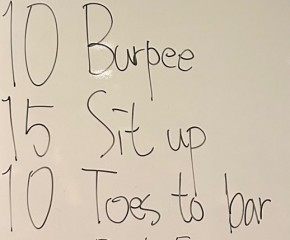 10 Burpee
15 Sit up
10 Toes to bar